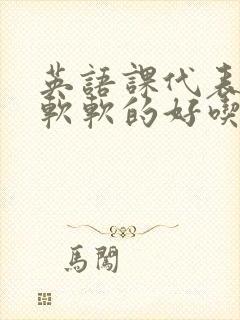 英語課代表
軟軟的好喫
馬闖